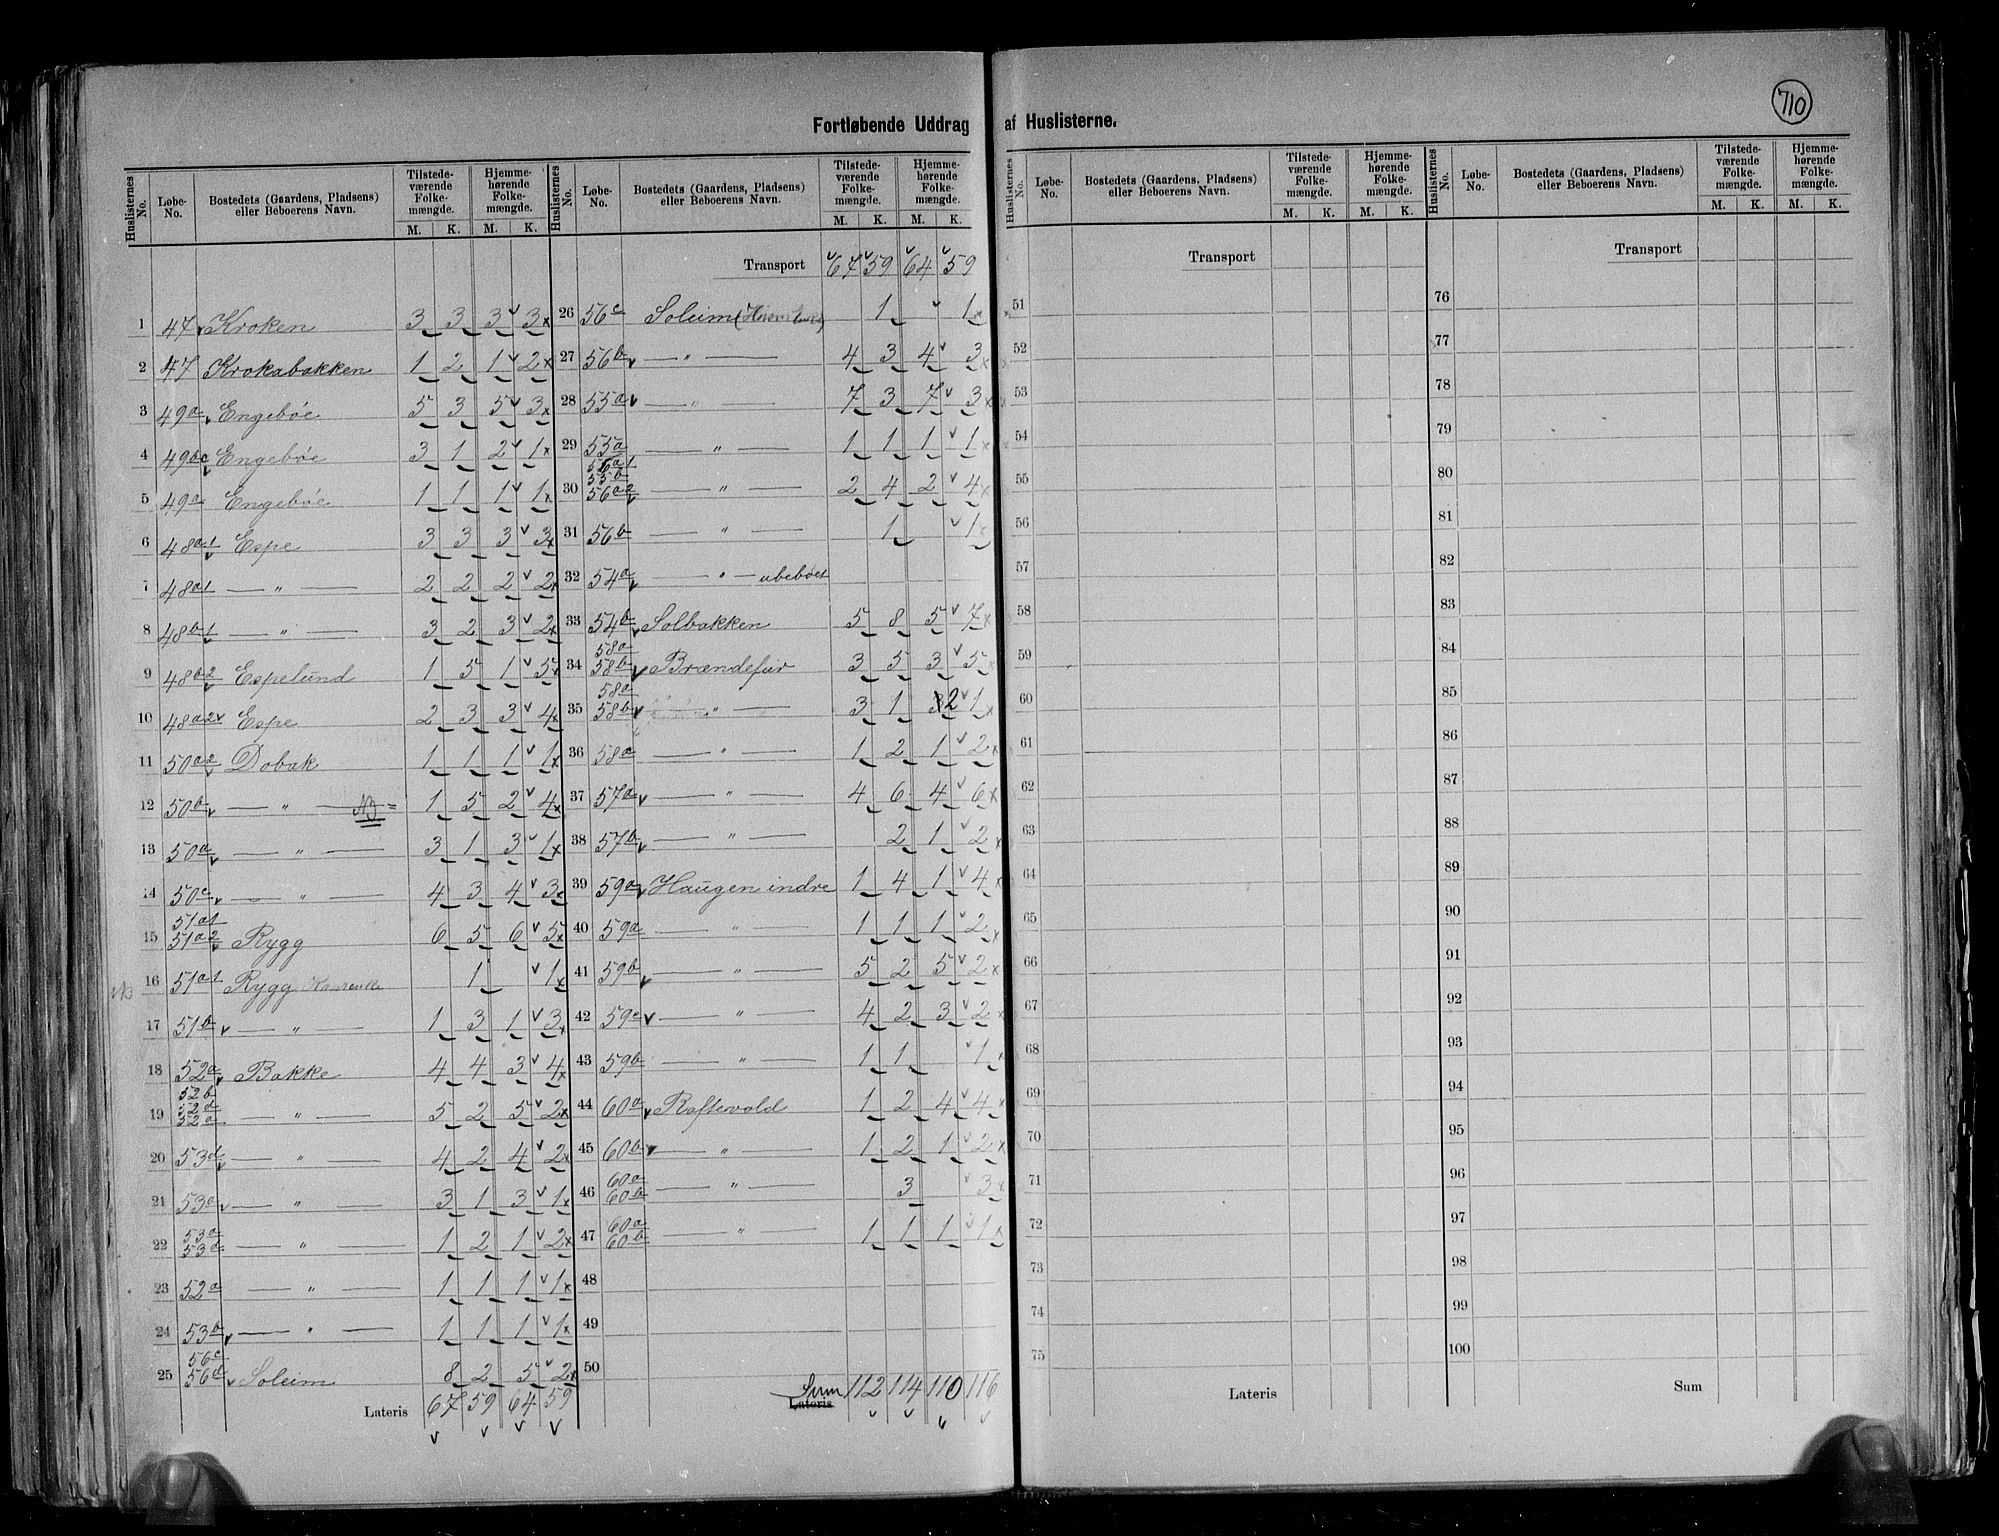 710
Fortløbende Uddrag af Huslisterne.
Huslisternes No. | Løbe-No. | Bostedets (Gaardens, Pladsens) eller Beboerens Navn. | Tilstede-værende Folke-mængde. M. K. | Hjemme-hørende Folke-mængde. M. K.
1 47 Kroken 3 3 3 3
2 47 Krokabakken 1 2 1 2
3 49a Engebøe 5 3 5 3
4 49bc Engebøe 3 1 2 1
5 49a Engebøe 1 1 1 1
6 48a1 Espe 3 3 3 3
7 48a1 — " — 2 2 2 2
8 48b1 — " — 3 2 3 2
9 48b2 Espelund 1 5 1 5
10 48a2 Espe 2 3 3 4
11 50a2 Dobak 1 1 1 1
12 50b — " — NB = 1 5 2 4
13 50a — " — 3 1 3 1
14 50c — " — 4 3 4 3
15 51a1 51a2 Rygg 6 5 6 5
16 51a1 Rygg 1 1
17 51b — " — 1 3 1 3
18 52a Bakke 4 4 3 4
19 52b 52d 52a — " — 5 2 5 2
20 53d — " — 4 2 4 2
21 53a — " — 3 1 3 1
22 53a 53d — " — 1 2 1 2
23 52a — " — 1 1 1 1
24 53b — " — 1 1 1 1
25 56c 56d Soleim 8 2 5 2
Lateris 67 59 64 59
Huslisternes No. | Løbe-No. | Bostedets (Gaardens, Pladsens) eller Beboerens Navn. | Tilstede-værende Folke-mængde. M. K. | Hjemme-hørende Folke-mængde. M. K.
Transport 67 59 64 59
26 56c Soleim 1 1
27 56b — " — 4 3 4 3
28 55a — " — 7 3 7 3
29 55a 56a1 — " — 1 1 1 1
30 55b 56a2 — " — 2 4 2 4
31 56b — " — 1 1
32 54a — " — ubeboet
33 54b Solbakken 5 8 5 7
34 58a 58b Brændefur 3 5 3 5
35 58a 58b — " — 3 1 2 1
36 58a — " — 1 2 1 2
37 57a — " — 4 6 4 6
38 57b — " — 2 1 2
39 59a Haugen indre 1 4 1 4
40 59a — " — 1 1 1 2
41 59b — " — 5 2 5 2
42 59c — " — 4 2 3 2
43 59b — " — 1 1 1
44 60a Raftevold 1 2 4 4
45 60b — " — 1 2 1 2
46 60a 60b — " — 3 3
47 60a 60b — " — 1 1 1 1
48
49
50
Sum Lateris 112 114 110 116
Huslisternes No. | Løbe-No. | Bostedets (Gaardens, Pladsens) eller Beboerens Navn. | Tilstede-værende Folke-mængde. M. K. | Hjemme-hørende Folke-mængde. M. K.
Transport
51
52
53
54
55
56
57
58
59
60
61
62
63
64
65
66
67
68
69
70
71
72
73
74
75
Lateris
Huslisternes No. | Løbe-No. | Bostedets (Gaardens, Pladsens) eller Beboerens Navn. | Tilstede-værende Folke-mængde. M. K. | Hjemme-hørende Folke-mængde. M. K.
Transport
76
77
78
79
80
81
82
83
84
85
86
87
88
89
90
91
92
93
94
95
96
97
98
99
100
Sum